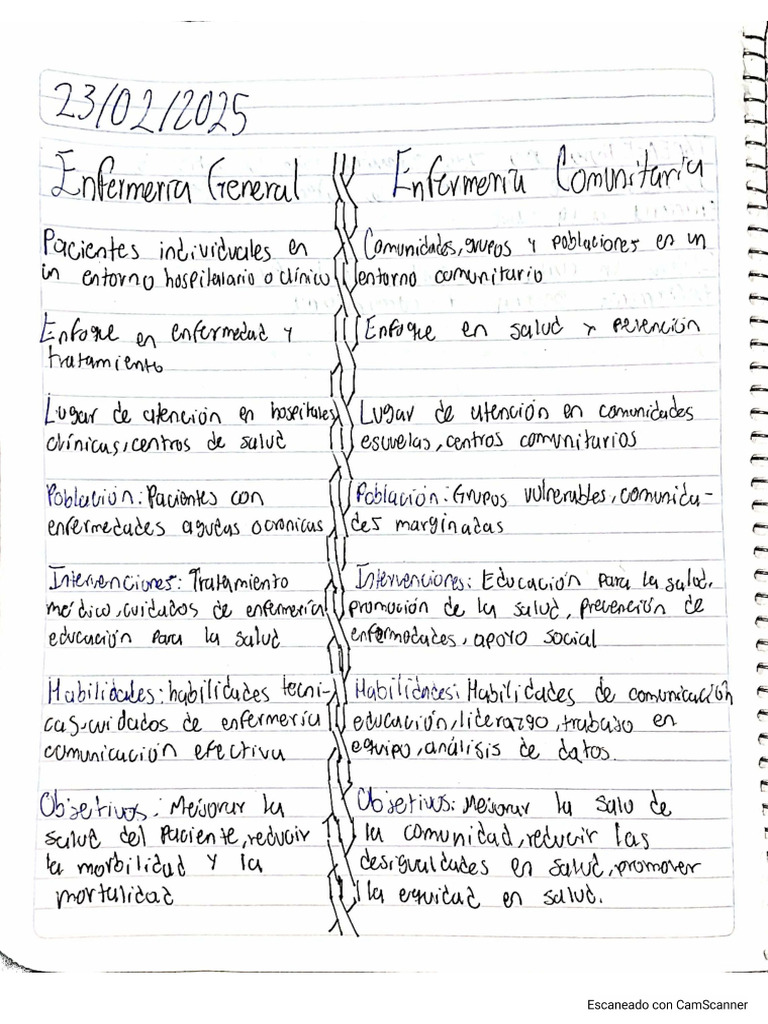 23/02/2025
Enfermería General
Pacientes individuales en
in entorno hospitalario o clínico
Enfoque en enfermedad y
tratamiento
Lugar de atención en hospitales
clínicas, centros de salud
Población: Pacientes con
enfermedades agudas o cronicas
Intervenciones: Tratamiento
médico, cuidados de enfermería
educación para la salud
Habilidades: habilidades tecni-
cas, cuidados de enfermería
comunicación efectiva
Objetivos: Mejorar la
salud del paciente, reducir
la morbilidad y la
mortalidad
Enfermería Comunitaria
Comunidades, grupos y poblaciones en un
entorno comunitario
Enfoque en salud y prevención
Lugar de atención en comunidades
escuelas, centros comunitarios
Población: Grupos vulnerables, comunida-
des marginadas
Intervenciones: Educación para la salud,
promoción de la salud, prevención de
enfermedades, apoyo social
Habilidades: Habilidades de comunicación
educación, liderazgo, trabajo en
equipo, análisis de datos.
Objetivos: Mejorar la salu de
la comunidad, reducir las
desigualdades en salud, promover
la equidad en salud.
Escaneado con CamScanner